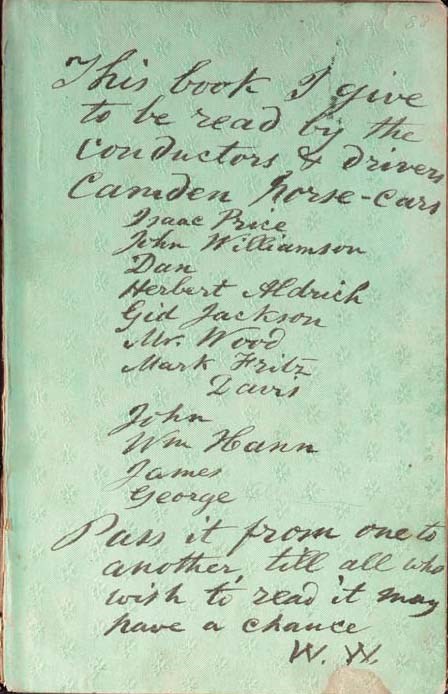 88
This book I give
to be read by the
conductors & drivers
Camden horse-cars
Isaac Price
John Williamson
Dan
Herbert Aldrich
Gid Jackson
Mr. Wood
Mark Fritz
Davis
John
Wm Hann
James
George
Pass it from one to
another, till all who
wish to read it may
have a chance
W. W.